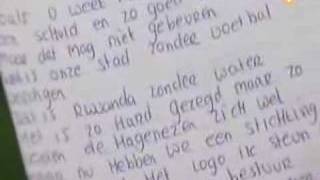 zoals u weet
en schuld en zo goed
maar dat mag niet gebeuren
wat is onze stad zonder voetbal
Dat is Rwanda zonder water
Het is zo Hard gezegd maar zo
de Hagenezen zich wel
nu Hebben we een stichting
Het Logo ik steun
bestuur